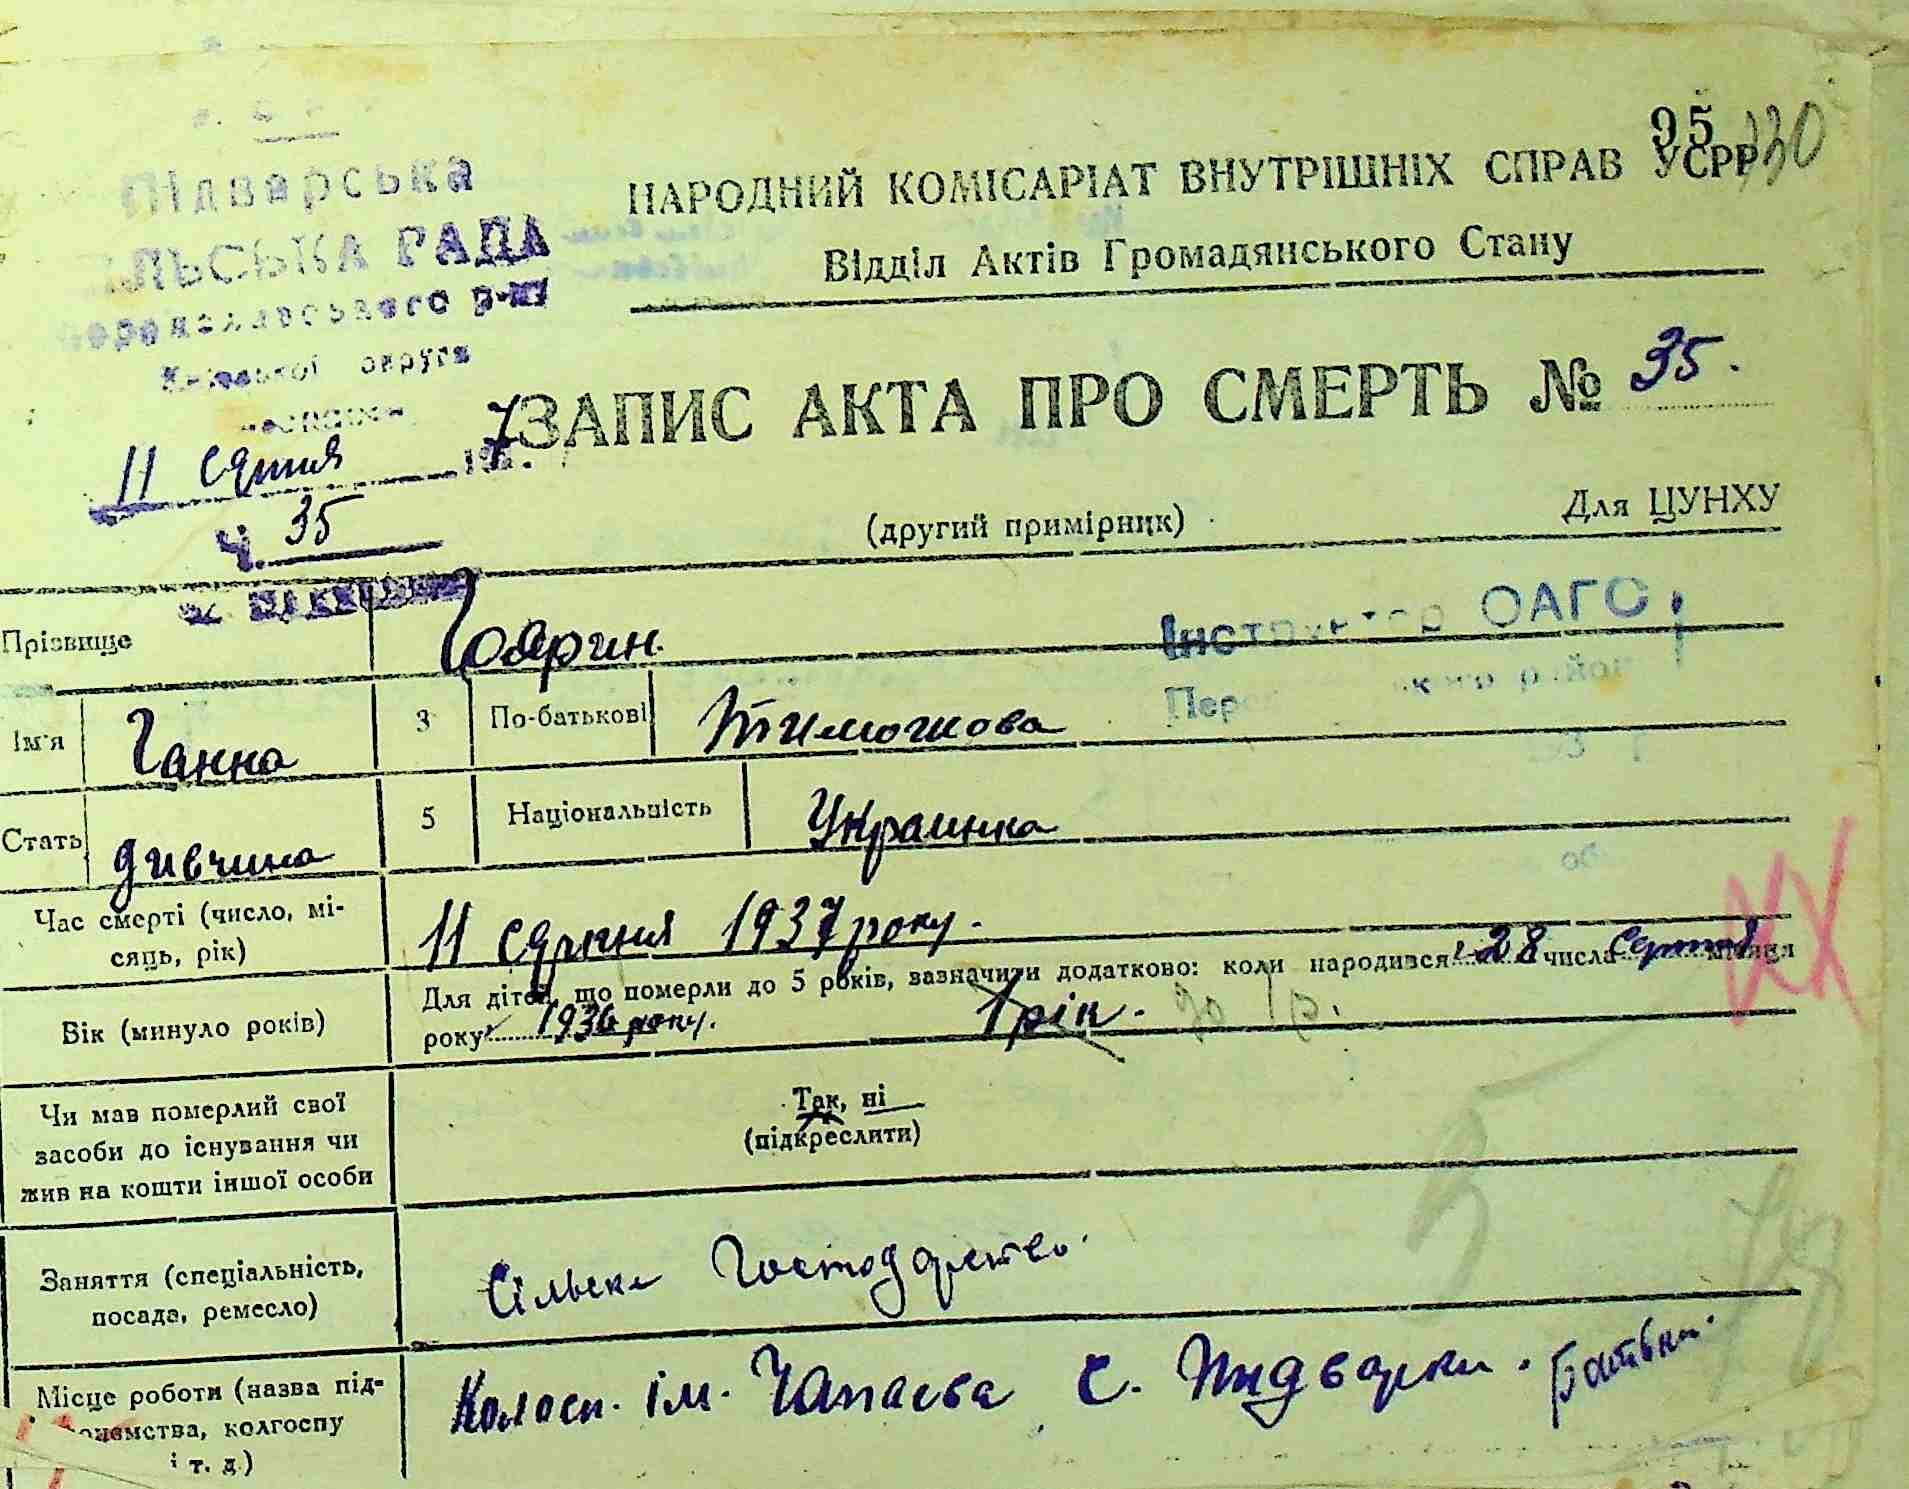 95
330
Підварська
СІЛЬСЬКА РАДА
Переяславського р-ну
Київської округи
11 серпня 1937
Ч. 35
НАРОДНИЙ КОМІСАРІАТ ВНУТРІШНІХ СПРАВ УСРР
Відділ Актів Громадянського Стану
ЗАПИС АКТА ПРО СМЕРТЬ № 35.
(другий примірник)
Для ЦУНХУ
Прізвище
Інструктор ОАГС
Ім'я Ганна 3 По-батькові Тимошкова
Стать дивчина 5 Національність Украинка
Час смерті (число, мі-
сяць, рік)
11 серпня 1937 року.
Вік (минуло років)
Для дітей, що померли до 5 років, зазначити додатково: коли народився 28 числа Серпня місяця
року 1936 року. 1 рік. до 1 р.
Чи мав померлий свої
засоби до існування чи
жив на кошти іншої особи
Так, ні
(підкреслити)
Заняття (спеціальність,
посада, ремесло)
Сільске Господарство.
Місце роботи (назва під-
приємства, колгоспу
і т. д.)
Колосп. ім. Чапаєва С. Пидварки. батьки.